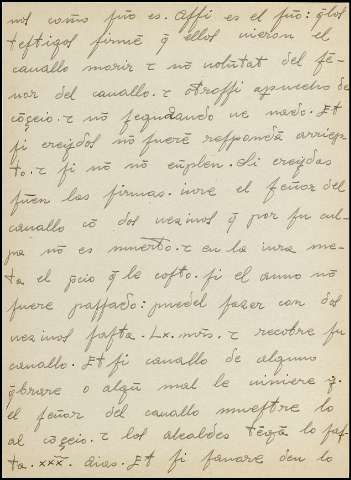 nos como ꝑão es. Affi es el ꝑão: q̃ los
teftigos firmẽ q̃ ellos uieron el
cauallo morir ⁊ nõ uolũtat del fẽ-
nor del cauallo. ⁊ otroffi aꝓuecho de
cõçeio. ⁊ nõ fegudando ue nado. Et
fi creydos nõ fuerẽ refpondã arriep-
to. ⁊ fi nõ nõ cũplen. Si creydos
fuen las firmas. iure el feñor del
cauallo cõ dos uezinos q̃ por fu cul-
pa nõ es muerto. ⁊ en la iura me-
ta el ꝓcio q̃ le cofto. fi el anno nõ
fuere paffado: puedel fazer con dos
uezinos fafta .Lx. mr̃s. ⁊ recobre fu
cauallo. Et fi cauallo de alguno
q̃brare o algũ mal le uiniere q̃.
el feñor del cauallo mueftre lo
al cõçeio. ⁊ los alcaldes tẽgã lo faf-
ta .xxx. dias. Et fi fanare den lo